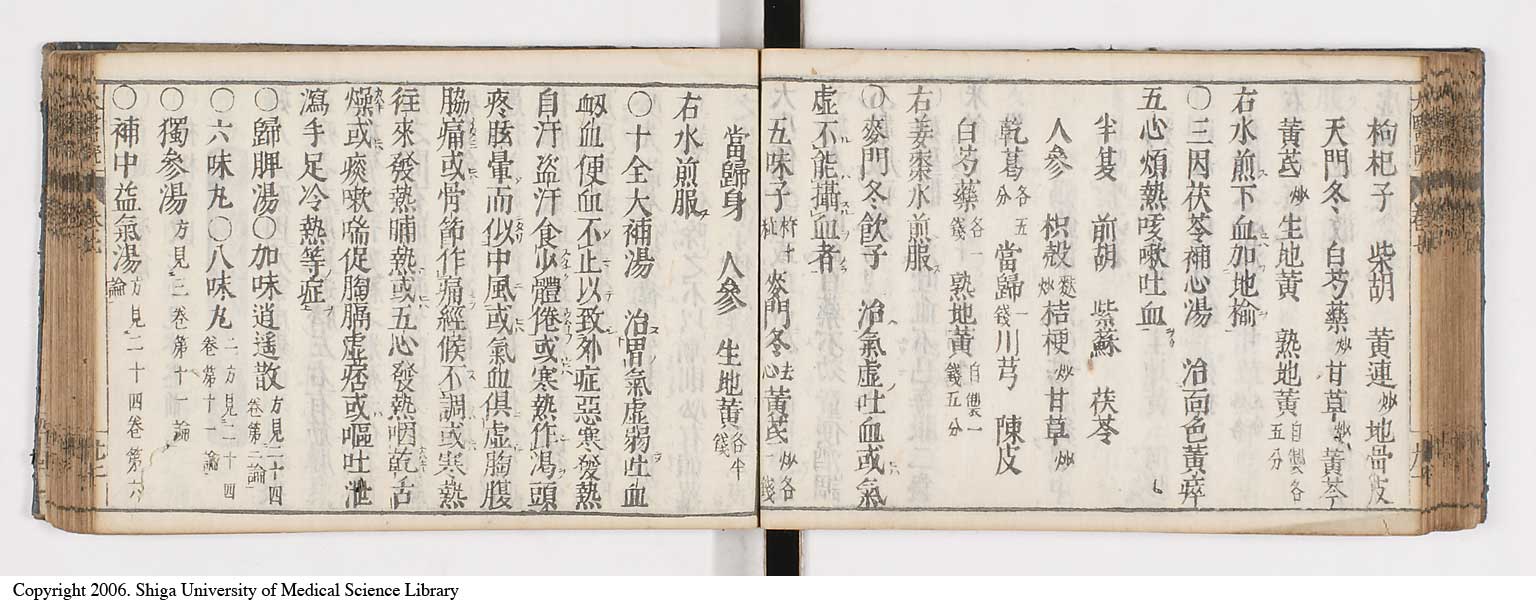 枸杞子 柴胡 黄連炒 地骨皮
天門冬 白芍藥炒 甘草炒 黄芩
黄芪炒 生地黄 熟地黄自製各五分
右水煎下血加地榆
〇三因茯苓補心湯 治面色黄瘁
五心煩熱咳嗽吐血
半夏 前胡 紫蘇 茯苓
人參 枳殻麩炒 桔梗炒 甘草炒
乾葛各五分 當歸一錢 川芎 陳皮
白芍藥各一錢 熟地黄自製一錢五分
右姜棗水煎服
〇麥門冬飲子 治氣虚吐血或氣
虚不能攝血者
五味子 麥門冬去心 黄芪炒各一錢
當歸身 人參 生地黄各半錢
右水煎服
〇十全大補湯 治胃氣虚弱吐血
衂血便血不止以致外症惡寒發熱
自汗盗汗食少體倦或寒熱作渇頭
疼眩暈而似中風或氣血倶虚胸腹
脇痛或骨節作痛經候不調或寒熱
往來發熱晡熱或五心發熱咽乾舌
燥或痰嗽喘促胸膈虚痞或嘔吐泄
瀉手足冷熱等症
〇歸脾湯〇加味逍遥散方見二十四卷第二論
〇六味丸〇八味丸二方見二十四卷第十一論
〇獨參湯方見三卷第十一論
〇補中益氣湯方見二十四卷第六論
Copyright 2006. Shiga University of Medical Science Library